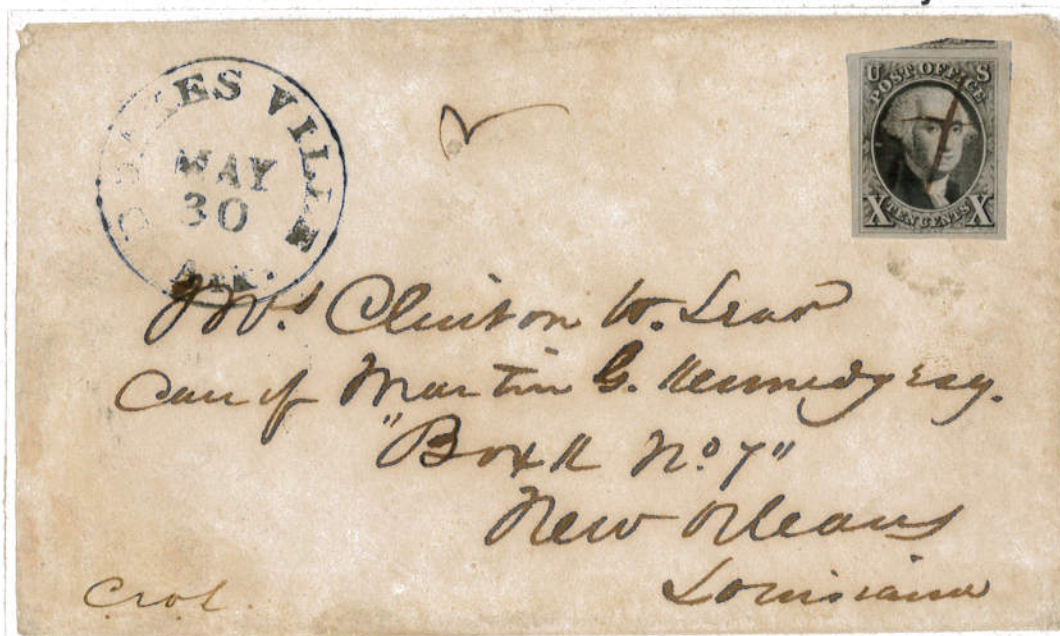 VILLE
MAY
30
Ark.
U S
POST OFFICE
X TEN CENTS X
Mrs Clinton W. Lear
Care of Martin G. Kennedy Esq.
"Box No 7"
New Orleans
Louisiana